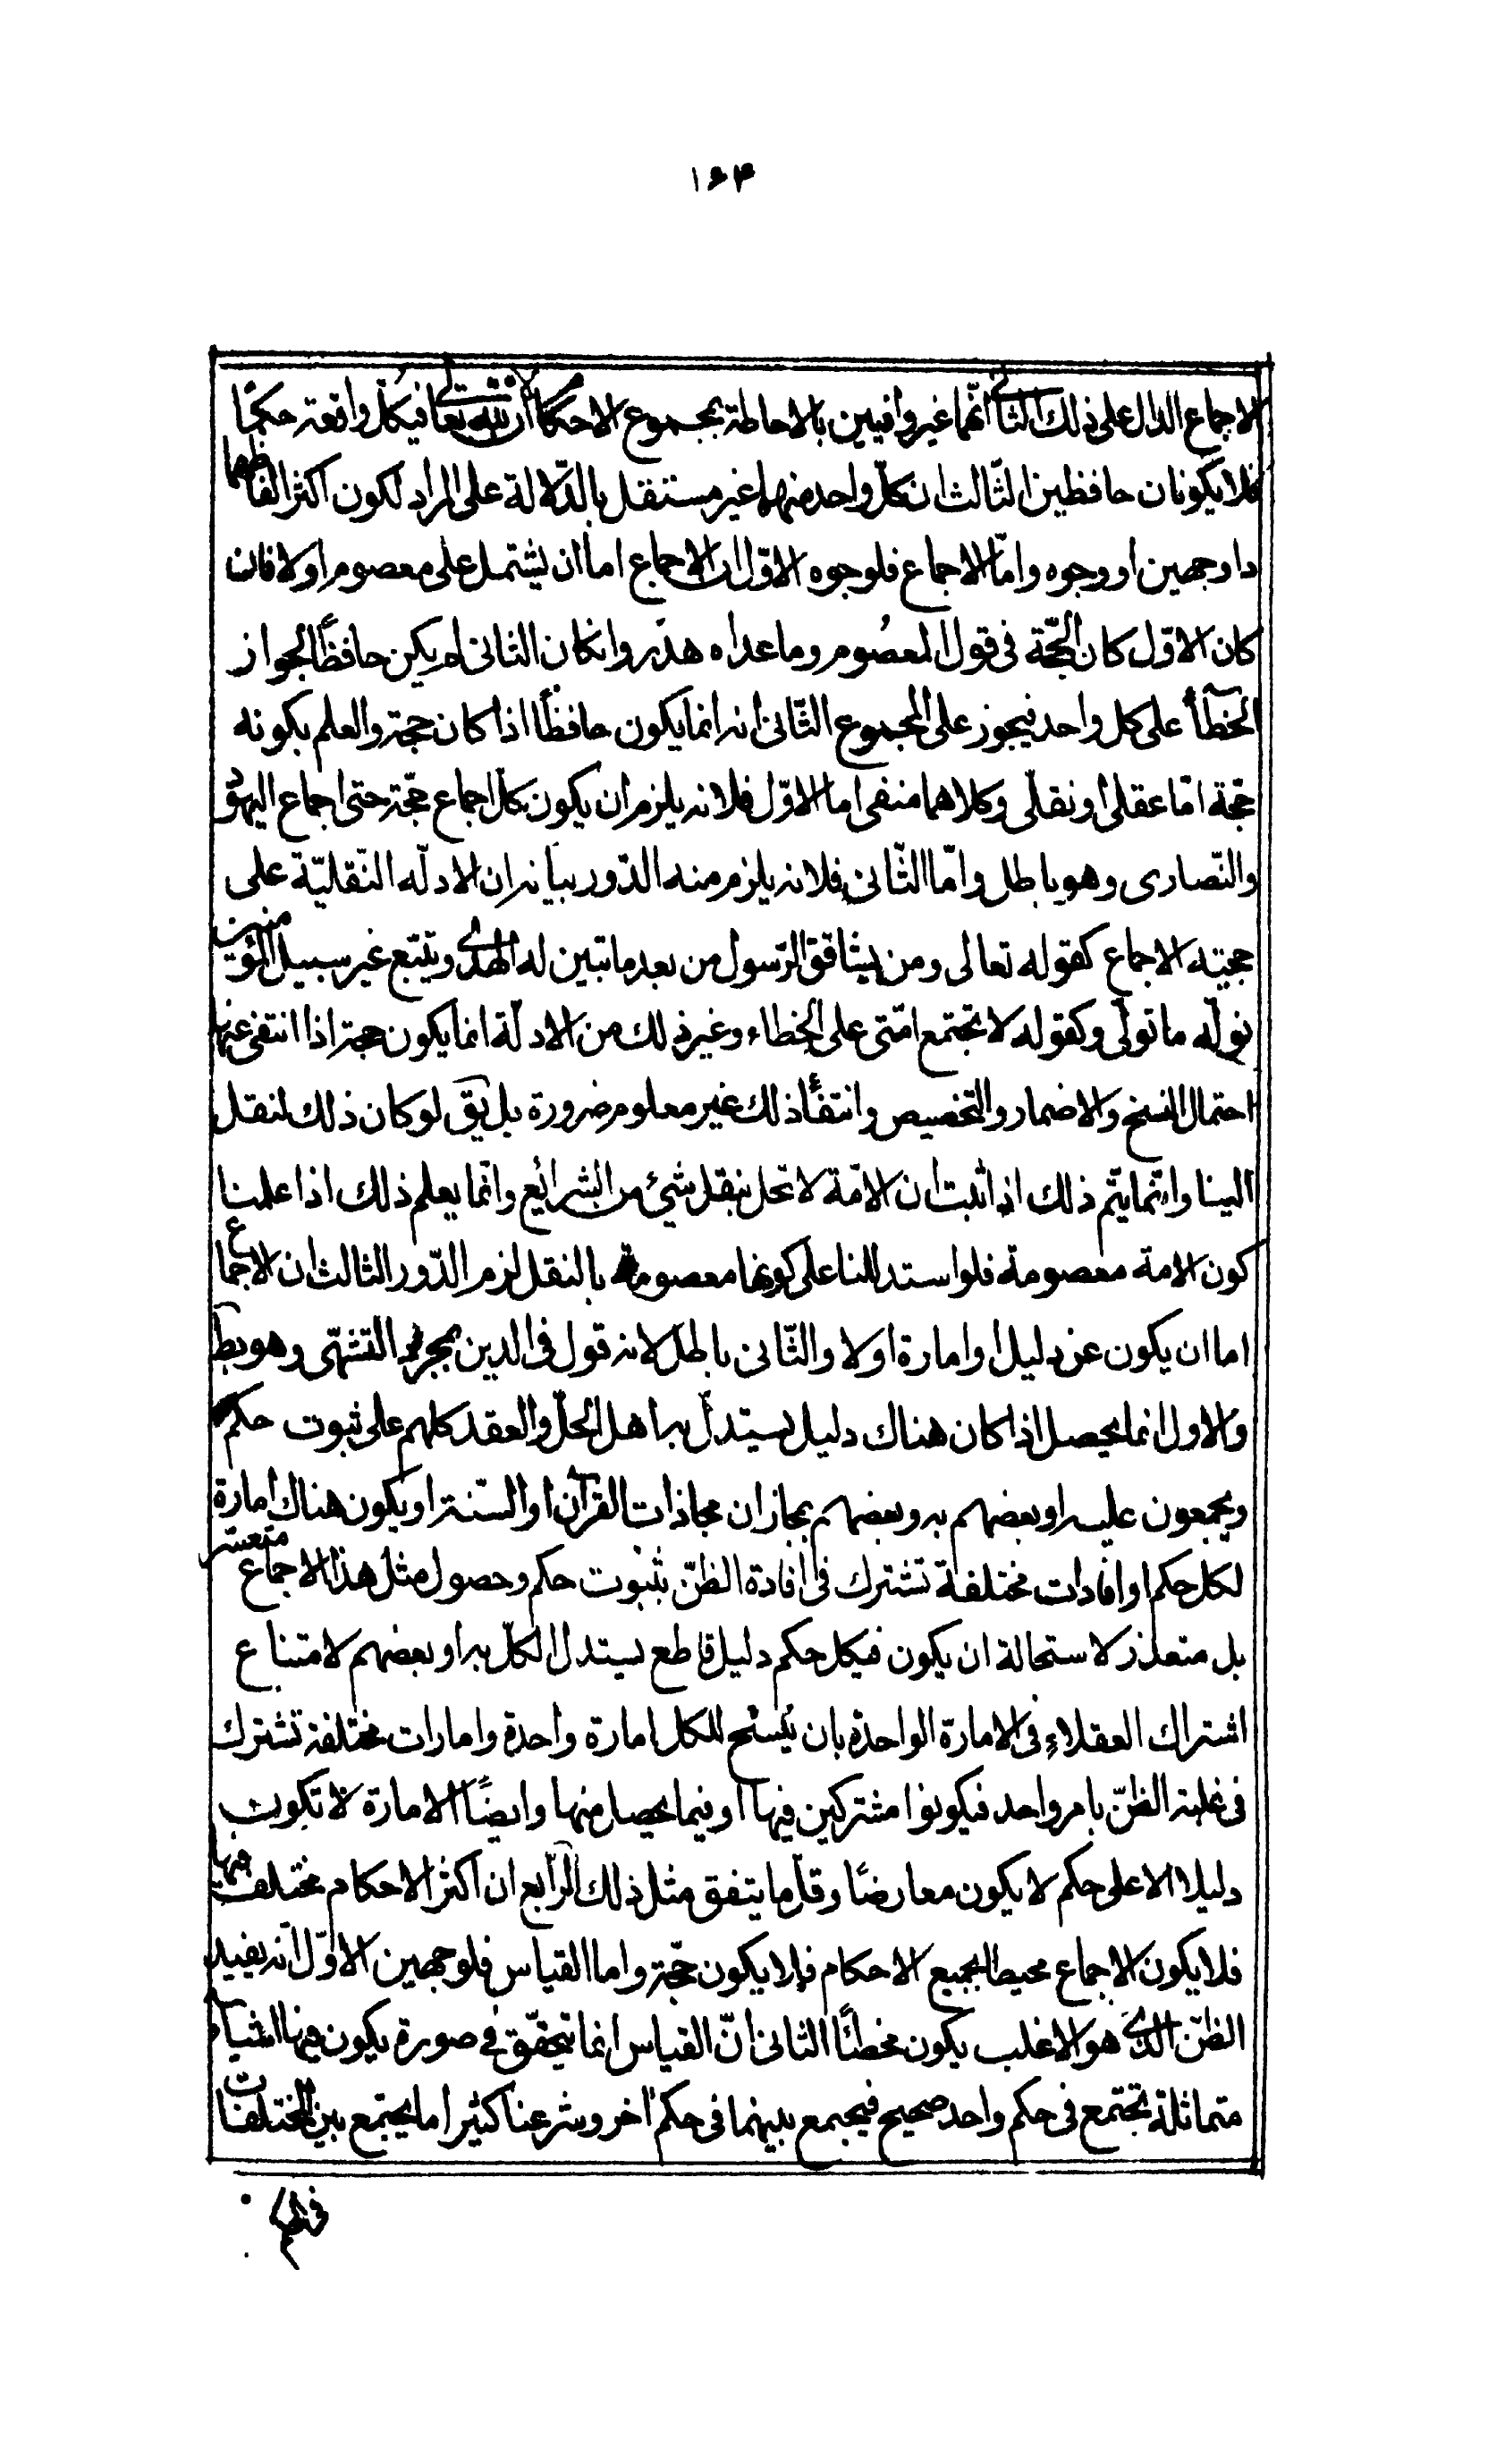 ۱۶۴
الاجماع الدال على ذلك الثانى انّهما غير وافيين بالاحاطة بمجموع الاحكام لان لله تعالى فيكلّ واقعة حكمًا
فلا يكونان حافظين الثّالث ان كلّ واحد منهما غير مستقل بالدّلالة على المراد لكون اكثر الفاظهما
ذا وجهين او وجوه وامّا الاجماع فلوجوه الاوّل ان الاجماع اما ان يشتمل على معصوم او لا فان
كان الاوّل كان الحجّة فى قول المعصوم وما عداه هدر وانكان الثانى لم يكن حافظًا لجواز
الخطأ على كل واحد فيجوز على المجموع الثّانى انه انما يكون حافظًا اذا كان حجة والعلم بكونه
حجة امّا عقلى او نقلى وكلاهما منفى اما الاوّل فلانه يلزم ان يكون كلّ اجماع حجّة حتى اجماع اليهود
والنّصارى وهو باطل وامّا الثّانى فلانه يلزم منه الدّور بيانه ان الادلّه النّقليّة على
حجيته الاجماع كقوله تعالى ومن يشاقق الرّسول من بعد ما تبين له الهدى ويتبع غير سبيل المؤمنين
نولّه ما تولّى وكقوله لا تجتمع امّتى على الخطاء وغير ذلك من الادلّة انما يكون حجة اذا انتفى عنها
احتمال النسخ والاضمار والتخصيص وانتفأ ذلك غير معلوم ضرورة بل يق لو كان ذلك لنقل
الينا وانّما يتّم ذلك اذا ثبت ان الامّة لا تخل بنقل شئ من الشرائع وانّما يعلم ذلك اذا علمنا
كون الامة معصومة فلو استدللنا على كونها معصومة بالنقل لزم الدّور الثالث ان الاجماع
اما ان يكون عن دليل او امارة او لا والثّانى باطل لانه قول فى الدين بمجرد التشهّى وهو بط
والاول انما يحصل اذا كان هناك دليل يستدلّ به اهل الحلّ والعقد كلهم على ثبوت حكم
ويجمعون عليه او بعضهم به وبعضهم بمجازان مجاذات القرآن او السّنة او يكون هناك امارة
لكل حكم او افادات مختلفة تشترك فى افادة الظنّ بثبوت حكم وحصول مثل هذا الاجماع متعسّر
بل متعذر لاستحالة ان يكون فيكل حكم دليل قاطع يستدل الكلّ به او بعضهم لامتناع
اشتراك العقلاء فى الامارة الواحدة بان يسنح للكل امارة واحدة وامارات مختلفة تشترك
فى غلبة الظنّ بامر واحد فيكونوا مشتركين فيها او فيما يحصل منها وايضًا الامارة لا تكون
دليلا الا على حكم لا يكون معارضًا وقلّ ما يتفق مثل ذلك الرّابع ان اكثر الاحكام مختلف فيها
فلا يكون الاجماع محيطا بجميع الاحكام فلا يكون حجّة واما القياس فلوجهين الاوّل انه يفيد
الظنّ الذى هو الاغلب يكون مخطئًا الثانى انّ القياس انما يتحقّق فى صورة يكون فيها اشياء
متماثلة تجتمع فى حكم واحد صحيح فيجمع بينهما فى حكم اخر وشرعنا كثيرا ما يجتمع بين المختلفات